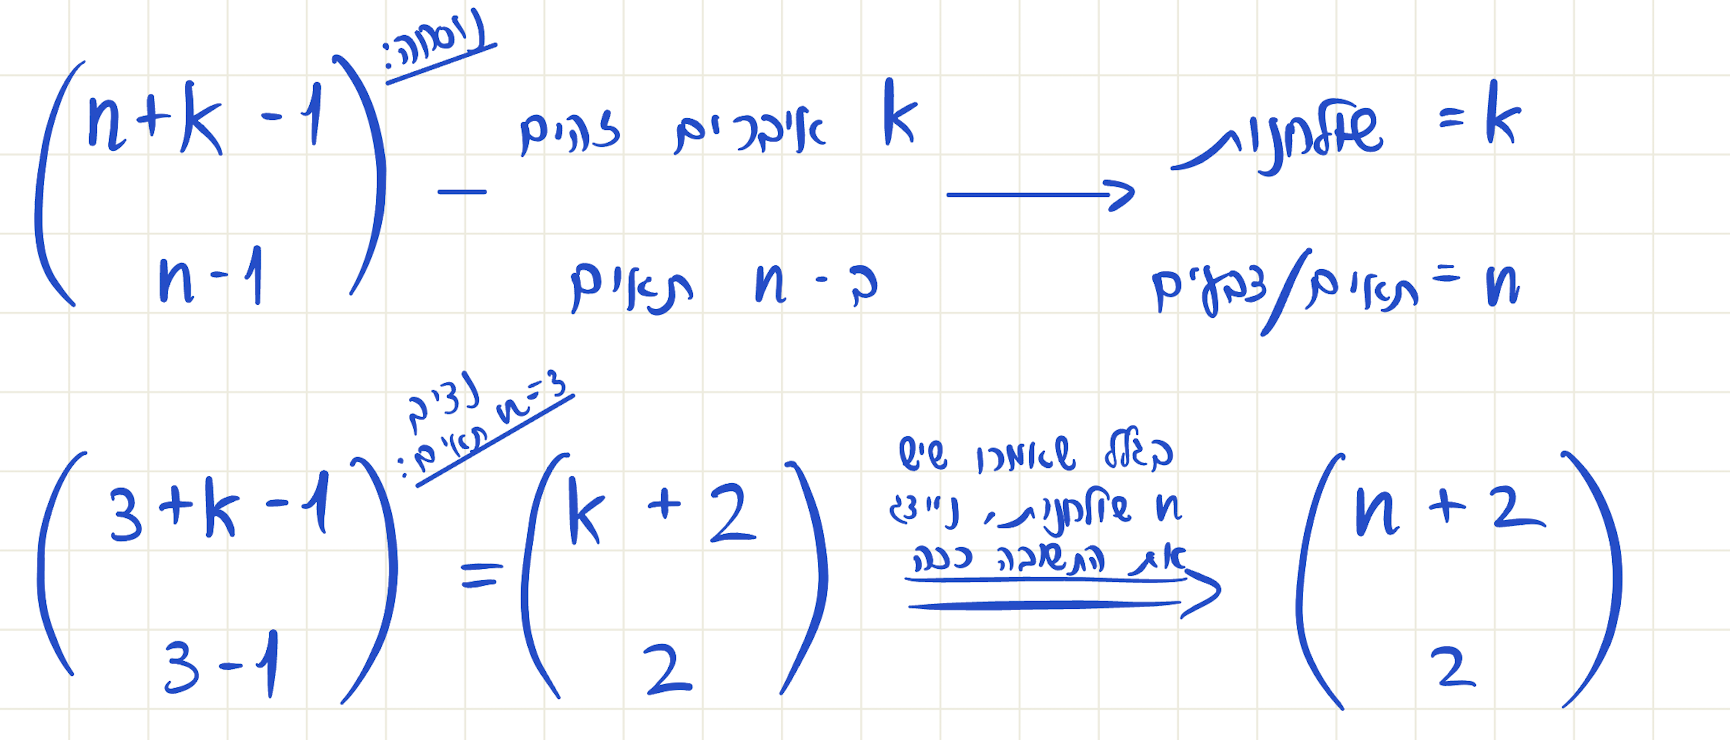 נוסחה:
(n+k-1 / n-1) - k איברים זהים ב-n תאים → k = שולחנות
n = תאים/צבעים
נציב n=3 תאים:
(3+k-1 / 3-1) = (k+2 / 2)
בגלל שאמרו שיש
n שולחנות, נייצג
את התשובה ככה
⇒ (n+2 / 2)